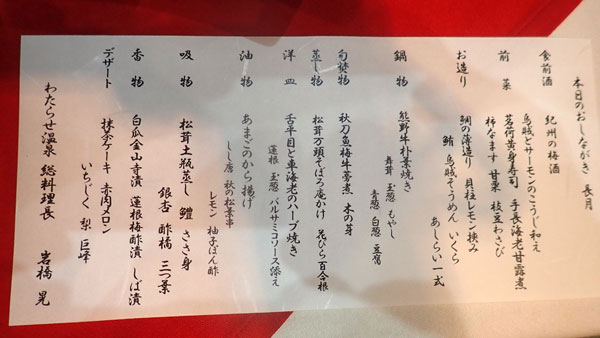 本日のおしながき 長月
食前酒 紀州の梅酒
前菜 烏賊とサーモンのこうじ和え
茗荷黄身寿司 手長海老甘露煮
柿なます 甘栗 枝豆わさび
お造り 鯛の薄造り 貝柱レモン挟み
鮪 烏賊そうめん いくら
あしらい一式
鍋物 熊野牛朴葉焼き
舞茸 玉葱 もやし
青葱 白葱 豆腐
旬焚物 秋刀魚梅牛蒡煮 木の芽
蒸し物 松茸万頭そぼろ庵かけ 花びら百合根
洋皿 舌平目と車海老のハーブ焼き
蓮根 玉葱 バルサミコソース添え
油物 あまごのから揚げ
しし唐 秋の松葉串
レモン 柚子ぽん酢
吸物 松茸土瓶蒸し 鱧 ささ身
銀杏 酢橘 三つ葉
香物 白瓜金山寺漬 蓮根梅酢漬 しば漬
デザート 抹茶ケーキ 赤肉メロン
いちじく 梨 巨峰
わたらせ温泉 総料理長 岩橋 晃